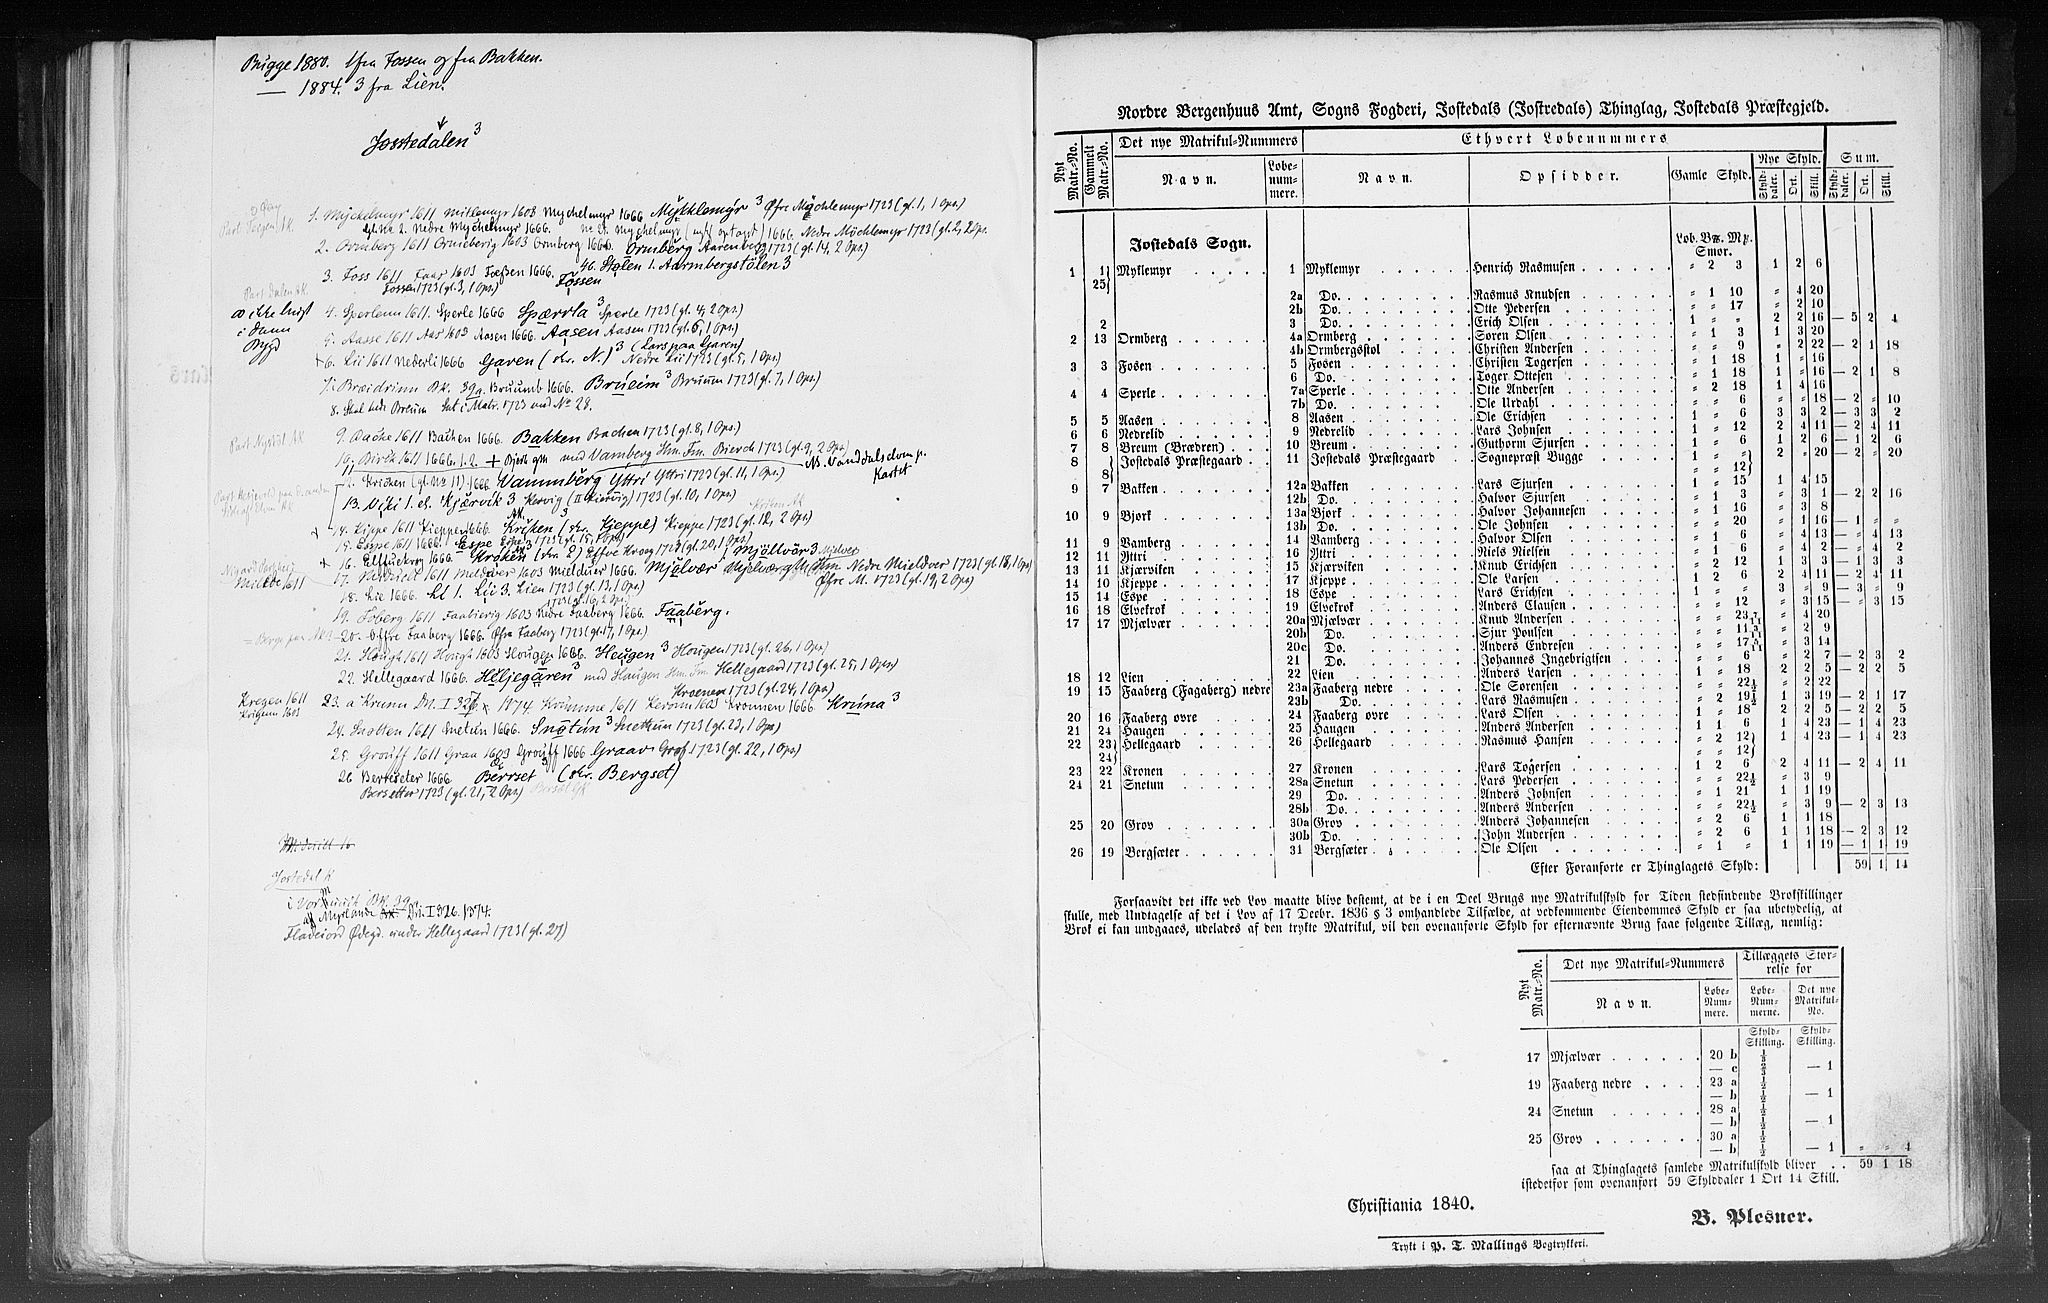 Bugge 1880. 1 fra Fossen og fra Bakken.
— 1884. 3 fra Lien.
Jostedalen 3
1. Myckelmyr 1611 Mitlemyr 1603 Mychelmyr 1666 Myklemyr 3 Øfre Mychlemyr 1723 (gl. 1, 1 Ops)
gl. No 2. Nedre Mychelmyr 1666.
1666. Nedre Mychlemyr 1723 (gl. 2, 2 Ops.
2. Ormberg 1611 Ormeberig 1603 Ormberg 1666. Ormberg Aarenberg 1723 (gl. 14, 2 Ops)
46. Stølen 1. Aarmbergstølen 3
3. Foss 1611 Faas 1603 Foessen 1666. Fossen
Fossen 1723 (gl. 3, 1 Ops)
ikke lagt
i denne
Bygd
4. Sperlenn 1611. Sperle 1666 Spærrla 3 Sperle 1723 (gl. 4, 2 Ops)
5. Aasse 1611 Aas 1603 Aasen 1666. Aasen Aasen 1723 (gl. 6, 1 Ops)
6. Lii 1611 Nederli 1666 Garen (skr. N.) 3 (Lars paa Garen) Nedre Lii 1723 (gl. 5, 1 Ops)
7. Bræidrinn Bk. 39a. Bruumb 1666. Brueim 3 Bruum 1723 (gl. 7, 1 Ops)
8. Skal hede Breum Snt i Matr. 1723 med No 28.
9. Bache 1611 Bachen 1666. Bakken Bachen 1723 (gl. 8, 1 Ops.)
10. Birch 1611 1666. 1. 2. + Bjerk gm med Vamberg Hm. Fm. Bierch 1723 (gl. 9, 2 Ops)
Kriken (gl. No 11) 1666. Vammberg Yttri Yttri 1723 (gl. 11, 1 Ops) NB. Vanddalsdom p. Kartet
13. Viki 1. el. Kjærvik 3 Kervig (Kiervig) 1723 (gl. 10, 1 Ops)
14. Kippe 1611 Kieppe 1666. Kriken 3 (skr. Kjeppe) Kieppe 1723 (gl. 12, 2 Ops)
15. Espe 1611 1666. Espe Espe 1723 (gl. 15, 1 Ops)
16. Elffuekrog 1666. Kroken 3 (fra 2) Elffve Kroeg 1723 (gl. 20, 1 Ops) Mjøllvær 3
17. 1611 Meldver 1603 Mieldver 1666. Mjølvær Mjelvær gm Hm Nedre Mieldver 1723 (gl. 18, 1 Ops)
Øfre M. 1723 (gl. 19, 2 Ops)
18. Lie 1666. Li 1. Lii 3. Lien 1723 (gl. 13, 1 Ops)
1723 (gl. 16, 2 Ops)
19. Foberg 1611 Faabierig 1603 Nedre Faaberg 1666. Faaberg.
20. Øffre Faaberg 1666. Øfre Faaberg 1723 (gl. 17, 1 Ops)
21. Hough 1611 Hough 1603 Hougen 1666. Heugen 3 Hougen 1723 (gl. 26, 1 Ops)
22. Hellegaard 1666. Heljegaren 3 med Haugen Hm. Fm. Hellegaard 1723 (gl. 25, 1 Ops)
Kroenen 1723 (gl. 24, 1 Ops)
Kregen 1611
23. a Krunu DN. I 326. 1374. Krumme 1611 Kerom 1603 Kronnen 1666 Kruna 3
24. Snotten 1611 Snetun 1666. Snøtun 3 Snettun 1723 (gl. 23, 1 Ops)
25. Grouff 1611 Graa 1603 Grouff 1666 Graav Grof 1723 (gl. 22, 1 Ops)
26 Berreseter 1666 Berrset (skr. Bergset)
Bersetter 1723 (gl. 21, 2 Ops)
Jostedal K
af Myrlande DN. I 326. 1374.
Fladeiord Ødegd. under Hellegaard 1723 (gl. 27)
Nordre Bergenhuus Amt, Sogns Fogderi, Jostedals (Jostredals) Thinglag, Jostedals Præstegjeld.
Nyt Matr.-No. Gammelt Matr.-No. Det nye Matrikul-Nummers Ethvert Løbenummers
Navn. Løbe-nummere. Navn. Opsidder. Gamle Skyld. Nye Skyld. Sum.
Skylddaler. Ort. Skill. Skylddaler. Ort. Skill.
Jostedals Sogn. Løb. Bℳ. Mp. Smør.
1 1 Myklemyr 1 Myklemyr Henrich Rasmusen " 2 3 1 2 6
25 2a Do. Rasmus Knudsen " 1 10 " 4 20
2b Do. Otte Pedersen " " 17 " 2 10
2 3 Do. Erich Olsen 1 " " 2 2 16 — 5 2 4
2 13 Ormberg 4a Ormberg Søren Olsen " 1 3 1 3 20
4b Ormbergsstøl Christen Andersen " " 9 " 2 22 — 2 1 18
3 3 Fosen 5 Fosen Christen Togersen " 1 18 1 " 16
6 Do. Toger Ottesen " 1 18 1 " 16 — 2 1 8
4 4 Sperle 7a Sperle Otte Andersen " 2 18 1 4 16
7b Do. Ole Urdahl " " 6 " " 18 — 2 " 10
5 5 Aasen 8 Aasen Ole Erichsen 1 " 6 3 3 2 — 3 3 2
6 6 Nedrelid 9 Nedrelid Lars Johnsen " " 12 " 2 4 11 — 2 4 11
7 8 Breum (Brædren) 10 Breum Guthorm Sjursen " 1 6 1 2 6 — 1 2 6
8 Jostedals Præstegaard 11 Jostedals Præstegaard Sognepræst Bugge 1 " " 2 " 20 — 2 " 20
8 " " 12
9 7 Bakken 12a Bakken Lars Sjursen " 1 15 1 4 15
12b Do. Halvor Sjursen " 1 3 " 3 1 — 2 2 16
10 9 Bjork 13a Bjork Halvor Johannesen " 1 16 " 3 8
13b Do. Ole Johnsen " " 20 " 1 16 — 1 " "
11 9 Vamberg 14 Vamberg Halvor Olsen " 1 6 " 4 13 — " 4 13
12 11 Yttri 16 Yttri Niels Nielsen " 1 6 " 4 2 — " 4 2
13 11 Kjærviken 15 Kjærviken Knud Erichsen " 2 12 1 3 3 — 1 3 3
14 10 Kjeppe 17 Kjeppe Ole Larsen 1 2 6 2 4 11 — 2 4 11
15 14 Espe 18 Espe Lars Erichsen 1 " " 3 " 9 — 3 " 9
16 18 Elvekrok 19 Elvekrok Anders Clausen " " 12 " 3 15 — " 3 15
17 17 Mjælvær 20a Mjælvær Knud Andersen " " 23 7/11 " 4 20
20b Do. Sjur Poulsen " " 11 3/11 " 2 9
20c Do. Anders Endresen " " 17 1/11 " 3 14
21 Do. Johannes Ingebrigtsen " " 6 " 2 7 — 2 3 2
18 12 Lien 22 Lien Anders Larsen " 1 18 2 2 5 — 2 2 5
19 15 Faaberg (Fagaberg) nedre 23a Faaberg nedre Ole Sørensen " " 22½ " 2 22
23b Do. Lars Rasmusen " 2 19½ 1 3 19 — 2 1 17
20 16 Faaberg øvre 24 Faaberg øvre Lars Olsen 1 " 18 2 2 5 — 2 2 5
21 24 Haugen 25 Haugen Anders Andersen 1 1 6 1 4 23 — 1 4 23
22 23 Hellegaard 26 Hellegaard Rasmus Hansen " 2 12 1 4 23 — 1 4 23
24 " " 12
23 22 Kronen 27 Kronen Lars Togersen 1 2 6 2 4 11 — 2 4 11
24 21 Snetun 28a Snetun Lars Pedersen " " 22½ " 3 9
29 Do. Anders Johnsen " 1 21 1 1 19
28b Do. Anders Andersen " " 22½ " 3 9 — 2 3 13
25 20 Grov 30a Grov Anders Johannesen " 2 6 1 1 18
30b Do. John Andersen " 2 6 1 1 18 — 2 3 12
26 19 Bergsæter 31 Bergsæter Ole Olsen " 1 " 1 1 19 — 1 1 19
Efter Foranførte er Thinglagets Skyld: 59 1 14
Forsaavidt det ikke ved Lov maatte blive bestemt, at de i en Deel Brugs nye Matrikulskyld for Tiden stedfindende Brøkskillinger
skulle, med Undtagelse af det i Lov af 17 Decbr. 1836 § 3 omhandlede Tilfælde, at vedkommende Eiendommes Skyld er saa ubetydelig, at
Brøk ei kan undgaaes, udelades af den trykte Matrikul, vil den ovenanførte Skyld for efternævnte Brug faae følgende Tillæg, nemlig:
Nyt Matr.-No. Det nye Matrikul-Nummers Tillæggets Størrelse for
Navn. Løbe-Nummere. Løbe-Nummerne. Det nye Matrikul-No.
Skyld-Skilling. Skyld-Skilling.
17 Mjælvær 20 b ⅓
— c ⅔ — 1
19 Faaberg nedre 23 a ½
— b ½ — 1
24 Snetun 28 a ½
— b ½ — 1
25 Grov 30 a ½
— b ½ — 1 " " 4
saa at Thinglagets samlede Matrikulskyld bliver . . 59 1 18
istedetfor som ovenanført 59 Skylddaler 1 Ort 14 Skill.
Christiania 1840.
B. Plesner.
Trykt i P. T. Mallings Bogtrykkeri.